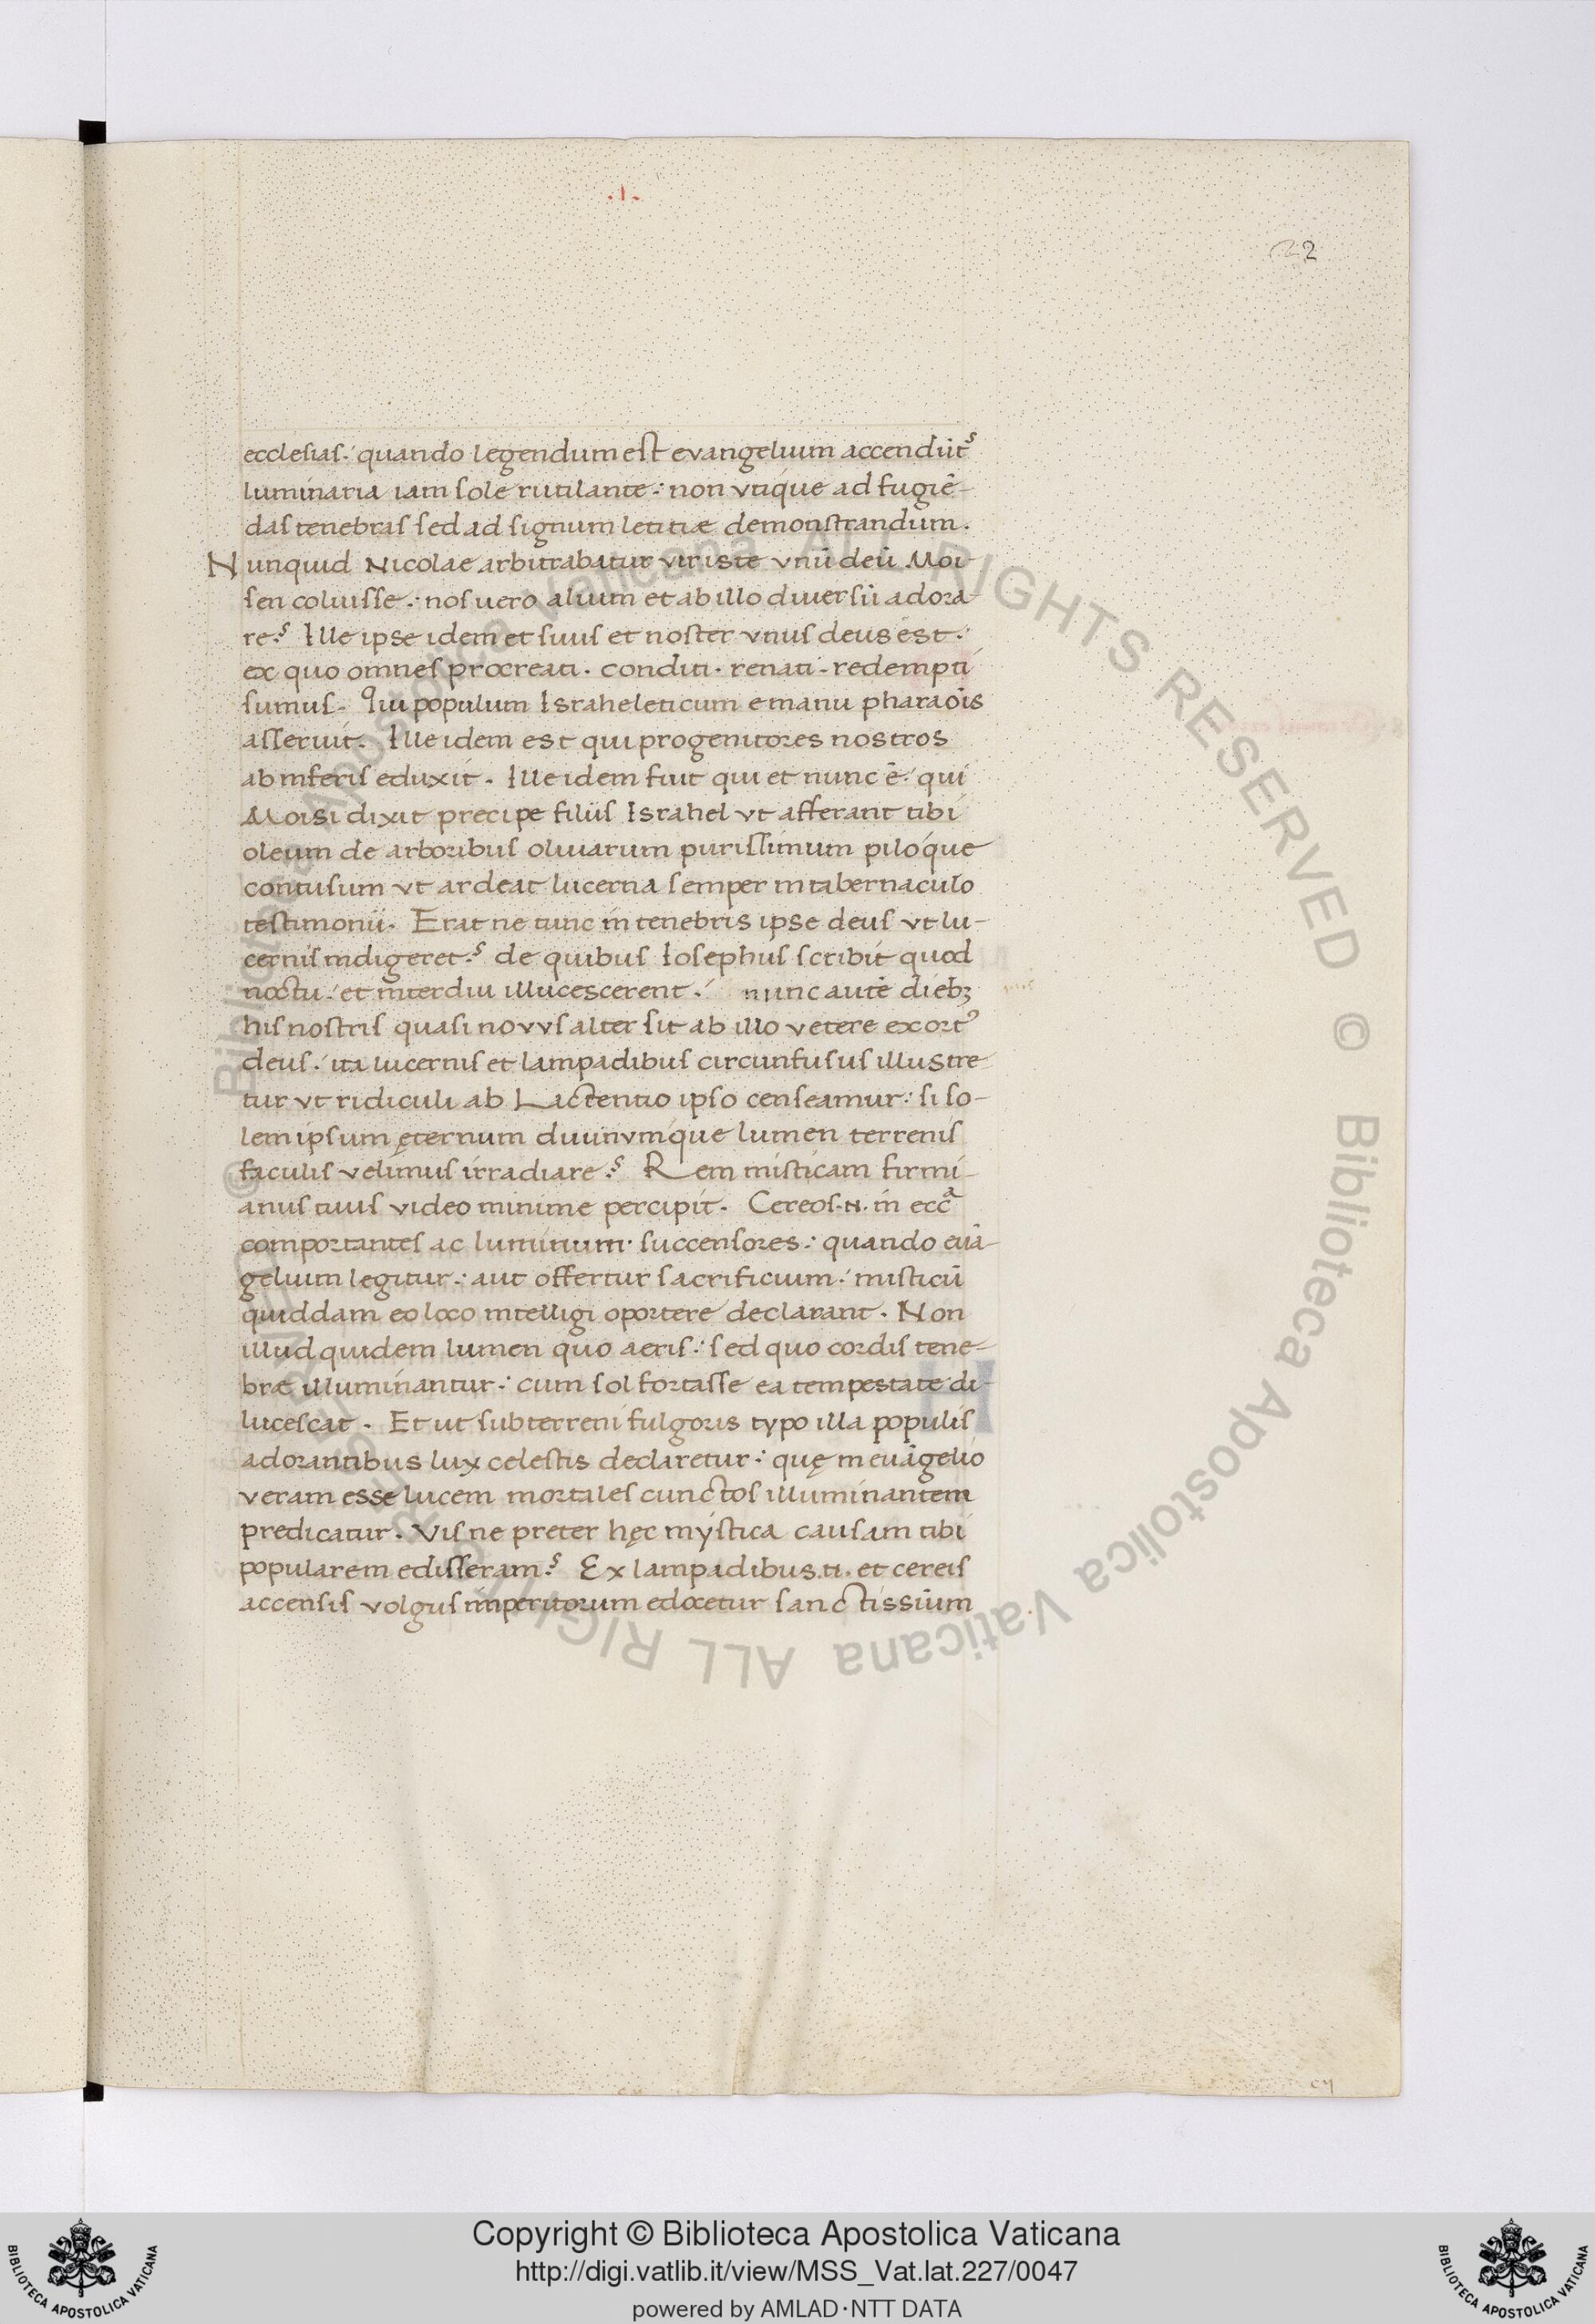 .I.
22
ecclesias. quando legendum est evangelium accendūt?
luminaria iam sole rutilante: non vtique ad fugiē-
das tenebras sed ad signum letitiæ demonstrandum.
Nunquid Nicolae arbitrabatur vir iste vnū deū Moi-
sen coluisse: nos uero alium et ab illo diuersū adora-
re? Ille ipse idem et suus et noster vnus deus est:
ex quo omnes procreati. conditi. renati. redempti
sumus. Qui populum Israheleticum e manu pharaōis
asseruit. Ille idem est qui progenitores nostros
ab inferis eduxit. Ille idem fuit qui et nunc ē. qui
Moisi dixit precipe filiis Israhel vt afferant tibi
oleum de arboribus oliuarum purissimum pilóque
contusum vt ardeat lucerna semper in tabernaculo
testimonii. Erat ne tunc in tenebris ipse deus vt lu-
cernis indigeret? de quibus Iosephus scribit quod
noctu. et interdiu illucescerent. nunc autē diebꝫ
his nostris quasi novvs alter sit ab illo vetere exortꝰ
deus. ita lucernis et lampadibus circunfusus illustre-
tur vt ridiculi ab Lactentio ipso censeamur: si so-
lem ipsum ęternum diuinvmque lumen terrenis
faculis velimus irradiare? Rem misticam firmi-
anus tuus video minime percipit. Cereos .N. in eccā
comportantes ac luminum succensores: quando euā-
gelium legitur: aut offertur sacrificium. misticū
quiddam eo loco intelligi oportere declarant. Non
illud quidem lumen quo aeris: sed quo cordis tene-
bræ illuminantur: cum sol fortasse ea tempestate di-
lucescat. Et ut sub terreni fulgoris typo illa populis
adorantibus lux celestis declaretur: quę in euāgelio
veram esse lucem mortales cunctos illuminantem
predicatur. Vis ne preter hęc mystica causam tibi
popularem edisseram? Ex lampadibus .ti. et cereis
accensis volgus imperitorum edocetur sanctissiūm
© Biblioteca Apostolica Vaticana ALL RIGHTS RESERVED © Biblioteca Apostolica Vaticana ALL RIGHTS RESERVED
Copyright © Biblioteca Apostolica Vaticana
http://digi.vatlib.it/view/MSS_Vat.lat.227/0047
powered by AMLAD·NTT DATA
BIBLIOTECA APOSTOLICA VATICANA
BIBLIOTECA APOSTOLICA VATICANA